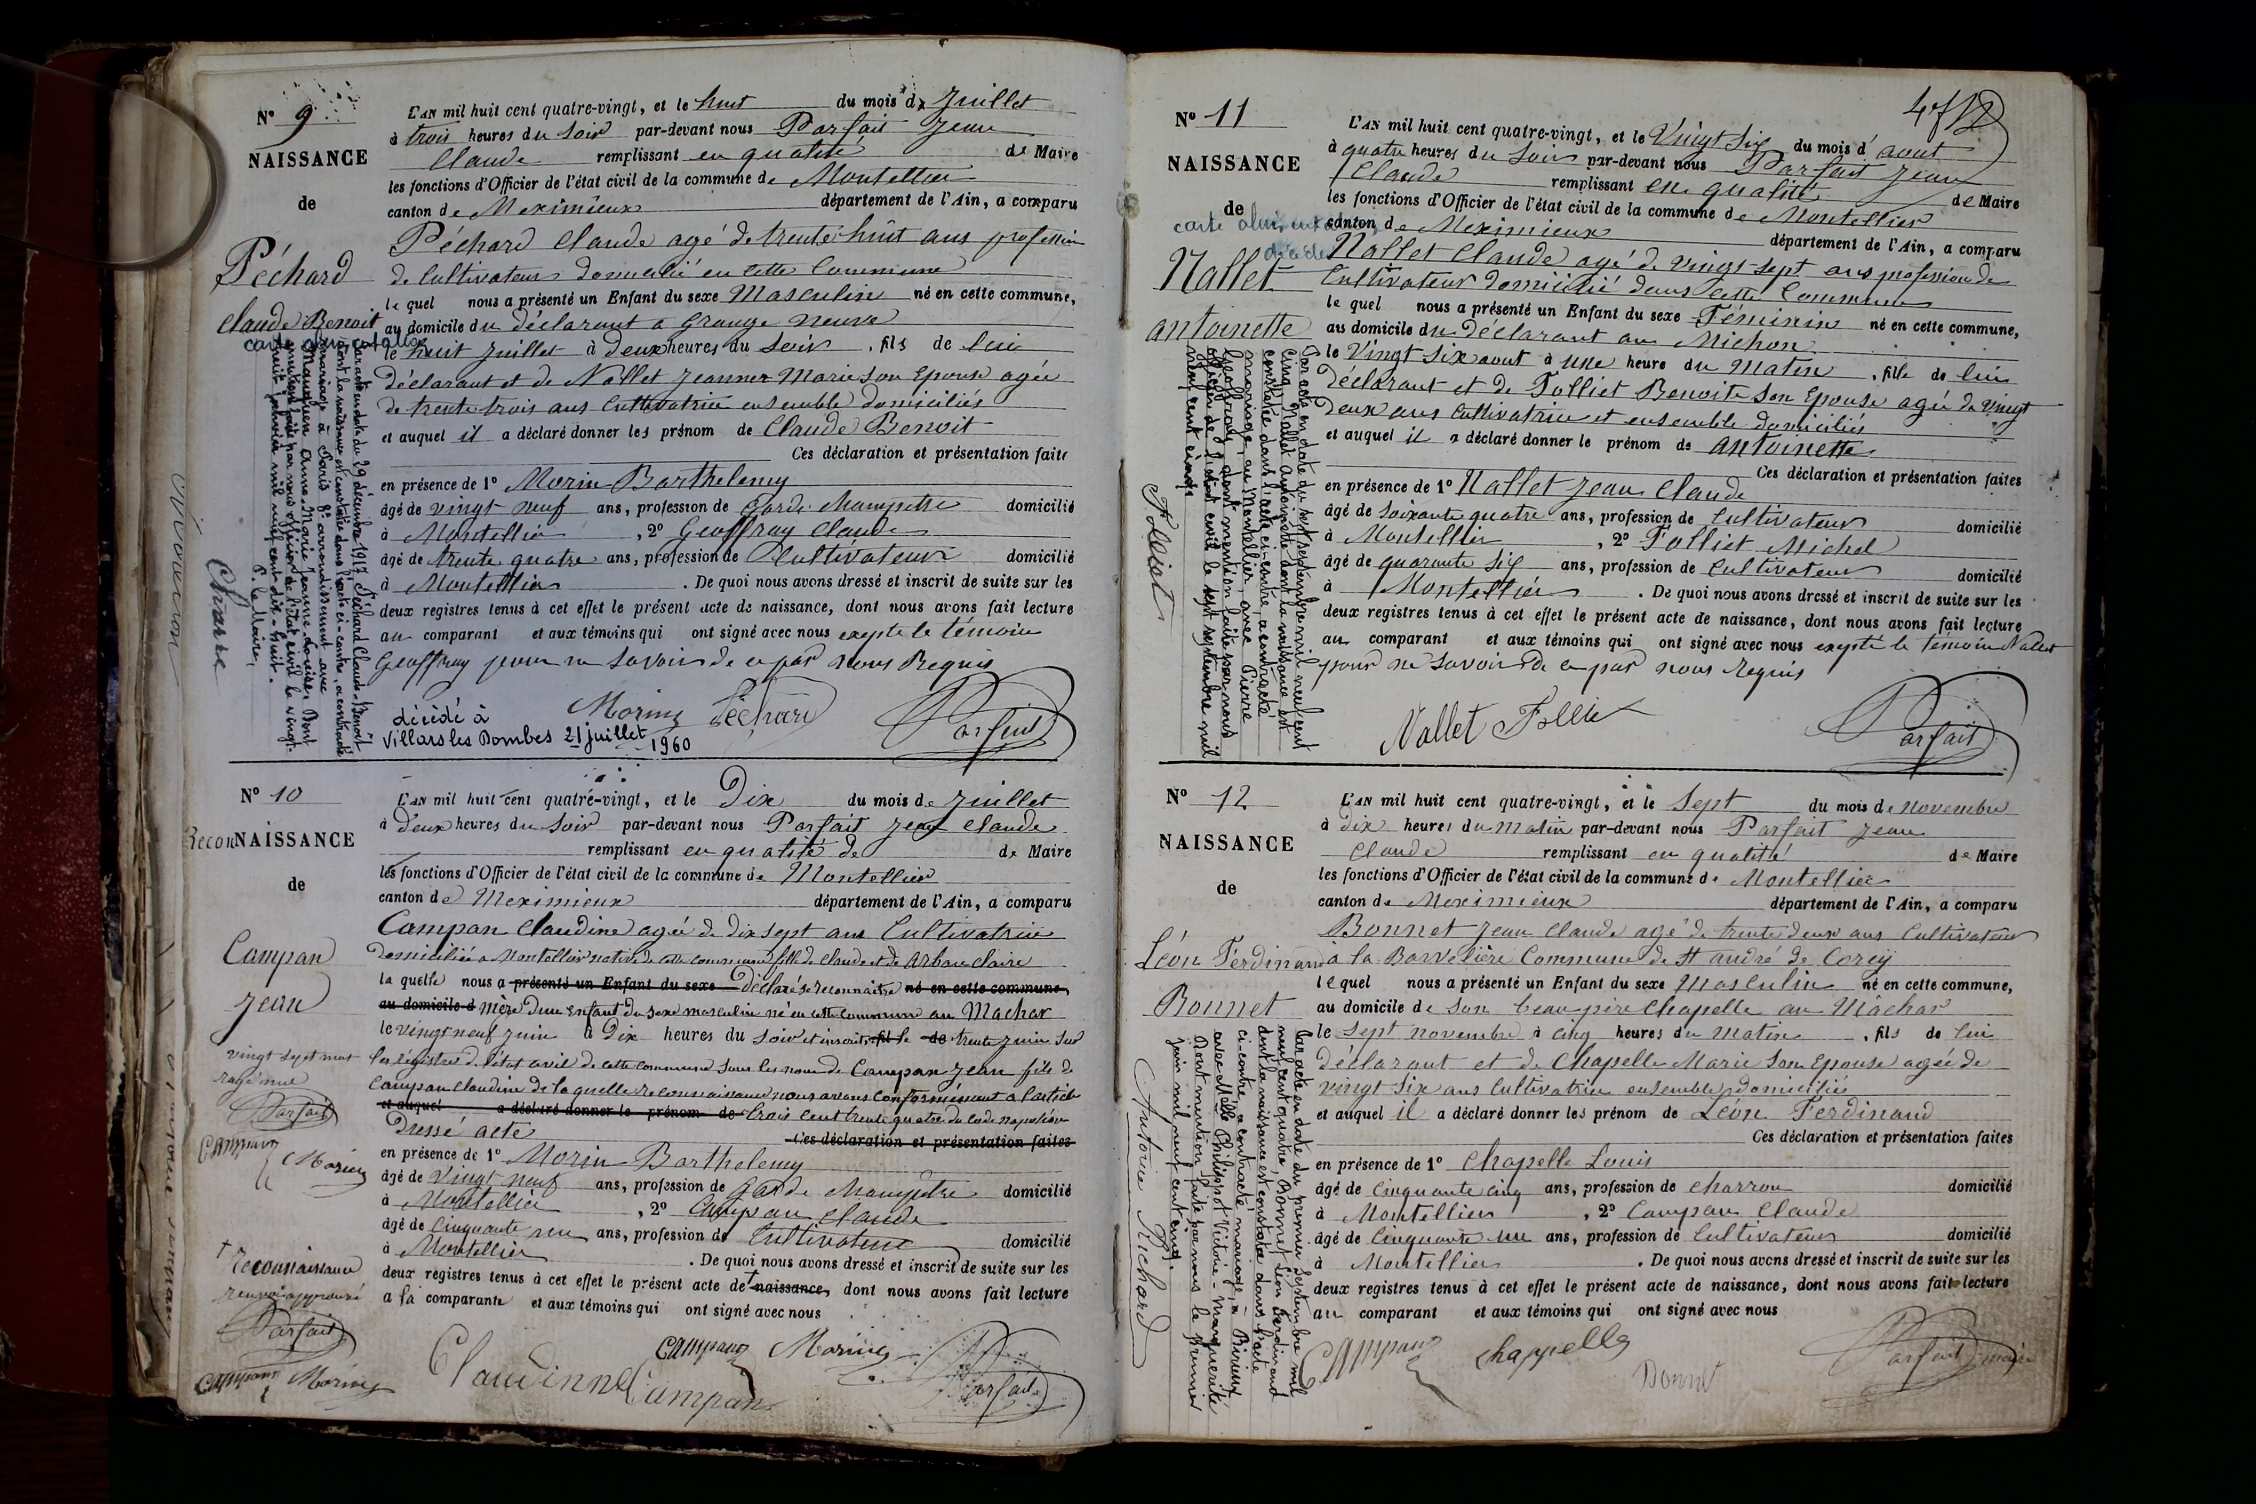 Nº 9
NAISSANCE
de
Péchard
Claude Benoit
carte alimentation
L'AN mil huit cent quatre-vingt, et le huit du mois de Juillet
à trois heures du Soir par-devant nous Parfait Jean
Claude remplissant en qualité de Maire
les fonctions d'Officier de l'état civil de la commune de Montellier
canton de Meximieux département de l'Ain, a comparu
Péchard Claude agé de trente huit ans profession
de Cultivateur domicilié en cette Commune
le quel nous a présenté un Enfant du sexe Masculin né en cette commune,
au domicile du déclarant a Grange neuve
le huit Juillet à Deux heures du Soir, fils de lui
déclarant et de Nallet Jeanne Marie son Epouse agée
de trente trois ans Cultivatrice ensemble domiciliés
et auquel il a déclaré donner les prénom de Claude Benoit
Ces déclaration et présentation faite
en présence de 1º Morin Barthelemy
âgé de vingt neuf ans, profession de Garde Champetre domicilié
à Montellier, 2º Geoffray Claude
âgé de trente quatre ans, profession de Cultivateur domicilié
à Montellier. De quoi nous avons dressé et inscrit de suite sur les
deux registres tenus à cet effet le présent acte de naissance, dont nous avons fait lecture
au comparant et aux témoins qui ont signé avec nous exepté le témoin
Geoffray pour ne Savoir de ce par nous Requis
Morin Péchard Parfait
décédé à
Villars les Dombes 21 juillet 1960
Par acte en date du 29 décembre 1917, Péchard Claude-Benoît
dont la naissance est constatée dans l'acte ci-contre, a contracté
mariage à Paris 8e arrondissement avec
Mauchien Anne-Marie Jeanne-Louise. Dont
mention faite par nous officier de l'état civil le vingt-
huit janvier mil neuf cent dix-huit.
P. le Maire,
Charre
Nº 10
Recon NAISSANCE
de
Campan
Jean
vingt sept mots
rayé nul
Parfait
Campan Morin
† reconnaissance
renvoi approuvé
Parfait
Campan Morin
L'AN mil huit cent quatre-vingt, et le Dix du mois de Juillet
à Deux heures du Soir par-devant nous Parfait Jean Claude
remplissant en qualité de de Maire
les fonctions d'Officier de l'état civil de la commune de Montellier
canton de Meximieux département de l'Ain, a comparu
Campan Claudine agée de Dix sept ans Cultivatrice
Domiciliée a Montellier native de cette commune fille de Claude et de Arban Claire
la quelle nous a présenté un Enfant du sexe Déclaré se reconnaitre né en cette commune,
au domicile d mère d'un Enfant du Sexe masculin né en cette commune au Machar
le vingt neuf Juin à Dix heures du Soir et inscrit fil le de trente Juin Sur
les régistres de l'état civil de cette commune Sous les nom de Campan Jean fils de
Campan Claudine de laquelle reconnaissance nous avons conformément a l'article
et auquel a déclaré donner le prénom de trois cent trente quatre du Code napoléon
Dressé acte Ces déclaration et présentation faites
en présence de 1º Morin Barthelemy
âgé de Vingt neuf ans, profession de Garde Champêtre domicilié
à Montellier, 2º Campan Claude
âgé de Cinquante un ans, profession de Cultivateur domicilié
à Montellier. De quoi nous avons dressé et inscrit de suite sur les
deux registres tenus à cet effet le présent acte de † naissance, dont nous avons fait lecture
a la comparante et aux témoins qui ont signé avec nous
Claudinne Campan Campan Morin Parfait
Nº 11
NAISSANCE
de
carte alimentation
décédée
Nallet
antoinette
L'AN mil huit cent quatre-vingt, et le Vingt Six du mois d'aout
à quatre heures du Soir par-devant nous Parfait Jean
Claude remplissant en qualité de Maire
les fonctions d'Officier de l'état civil de la commune de Montellier
canton de Méximieux département de l'Ain, a comparu
Nallet Claude agé de vingt-sept ans profession de
Cultivateur domicilié dans cette Commune
le quel nous a présenté un Enfant du sexe Féminin né en cette commune,
au domicile du Déclarant au Michon
le Vingt Six aout à une heure du Matin, fille de lui
Déclarant et de Folliet Benoite Son Epouse agée de vingt
Deux ans Cultivatrice et ensemble domiciliés
et auquel il a déclaré donner le prénom de antoinette
Ces déclaration et présentation faites
en présence de 1º Nallet Jean Claude
âgé de Soixante quatre ans, profession de Cultivateur domicilié
à Montellier, 2º Folliet Michel
âgé de quarante Six ans, profession de Cultivateur domicilié
à Montellier. De quoi nous avons dressé et inscrit de suite sur les
deux registres tenus à cet effet le présent acte de naissance, dont nous avons fait lecture
au comparant et aux témoins qui ont signé avec nous exepté le témoin Nallet
pour ne Savoir de ce par nous requis
Nallet Folliet Parfait
Par acte en date du sept septembre mil neuf cent
cinq, Nallet Antoinette dont la naissance est
constatée dans l'acte ci-contre, a contracté
mariage, au Montellier, avec Pierre
Geoffray, dont mention faite par nous
officier de l'état civil le sept septembre mil
neuf cent cinq
Folliet
Nº 12
NAISSANCE
de
Léon Ferdinand
Bonnet
L'AN mil huit cent quatre-vingt, et le Sept du mois de novembre
à Dix heures du Matin par-devant nous Parfait Jean
Claude remplissant en qualité de Maire
les fonctions d'Officier de l'état civil de la commune de Montellier
canton de Meximieux département de l'Ain, a comparu
Bonnet Jean Claude agé de trente deux ans Cultivateur
à la Bouvelière Commune de St andré de Corcy
le quel nous a présenté un Enfant du sexe Masculin né en cette commune,
au domicile de Son beau père Chapelle au Mâchar
le Sept novembre à cinq heures du Matin, fils de lui
déclarant et de Chapelle Marie Son Epouse agée de
vingt Six ans Cultivatrice ensemble domiciliés
et auquel il a déclaré donner les prénom de Léon Ferdinand
Ces déclaration et présentation faites
en présence de 1º Chapelle Louis
âgé de Cinquante cinq ans, profession de Charron domicilié
à Montellier, 2º Campan Claude
âgé de Cinquante un ans, profession de Cultivateur domicilié
à Montellier. De quoi nous avons dressé et inscrit de suite sur les
deux registres tenus à cet effet le présent acte de naissance, dont nous avons fait lecture
au comparant et aux témoins qui ont signé avec nous
Campan Chappelle Bonnet Parfait maire
Par acte en date du premier Septembre mil
neuf cent quatre, Bonnet Léon Ferdinand
dont la naissance est constatée dans l'acte
ci-contre, a contracté mariage, à Birieux
avec Mlle Philippot Victorine-Marguerite
Dont mention faite par nous le premier
juin mil neuf cent cinq.
Antoine Richard